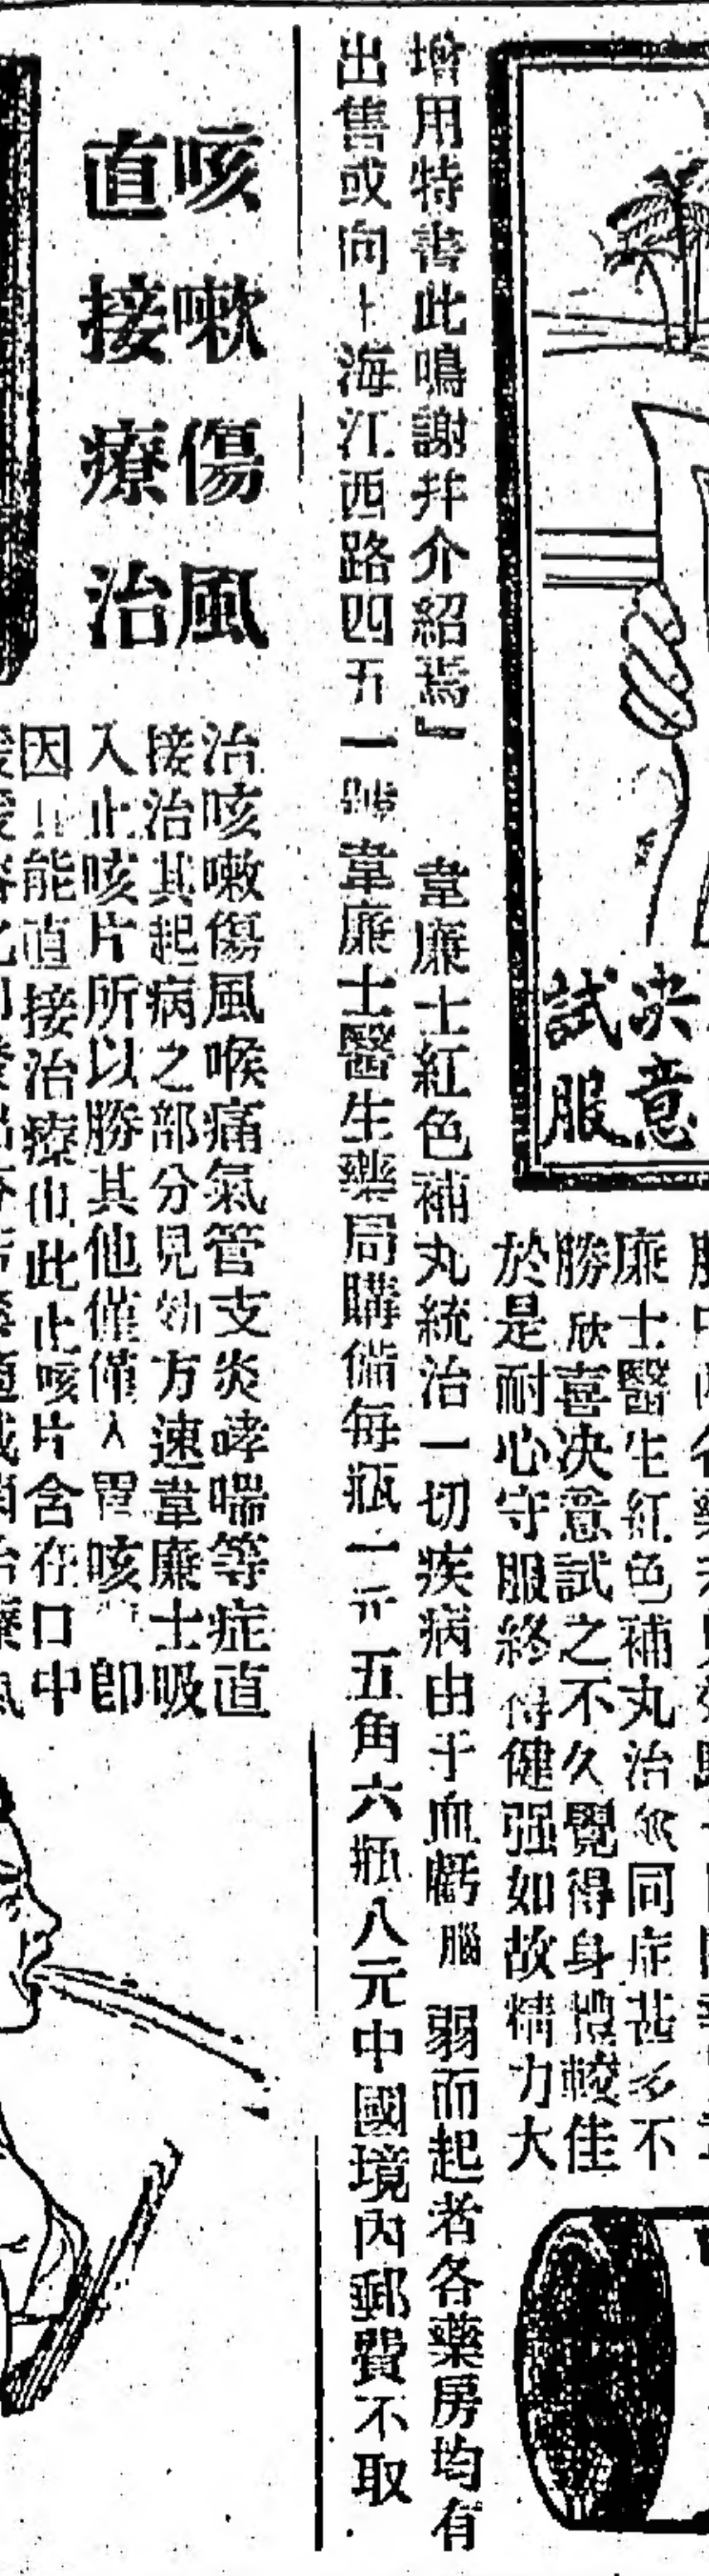 决意
試服
廉士醫生紅色補丸治愈同症甚多不
勝欣喜决意試之不久覺得身體較佳
於是耐心守服終得健强如故精力大
增用特書此鳴謝幷介紹焉』 韋廉士紅色補丸統治一切疾病由于血虧腦 弱而起者各藥房均有
出售或向上海江西路四五一號韋廉士醫生藥局購備每瓶一元五角六瓶八元中國境內郵費不取
咳嗽傷風
直接療治
治咳嗽傷風喉痛氣管支炎哮喘等症直
接治其起病之部分見効方速韋廉士吸
入止咳片所以勝其他僅僅入胃咳 卽
因其能直接治療也此止咳片含在口中